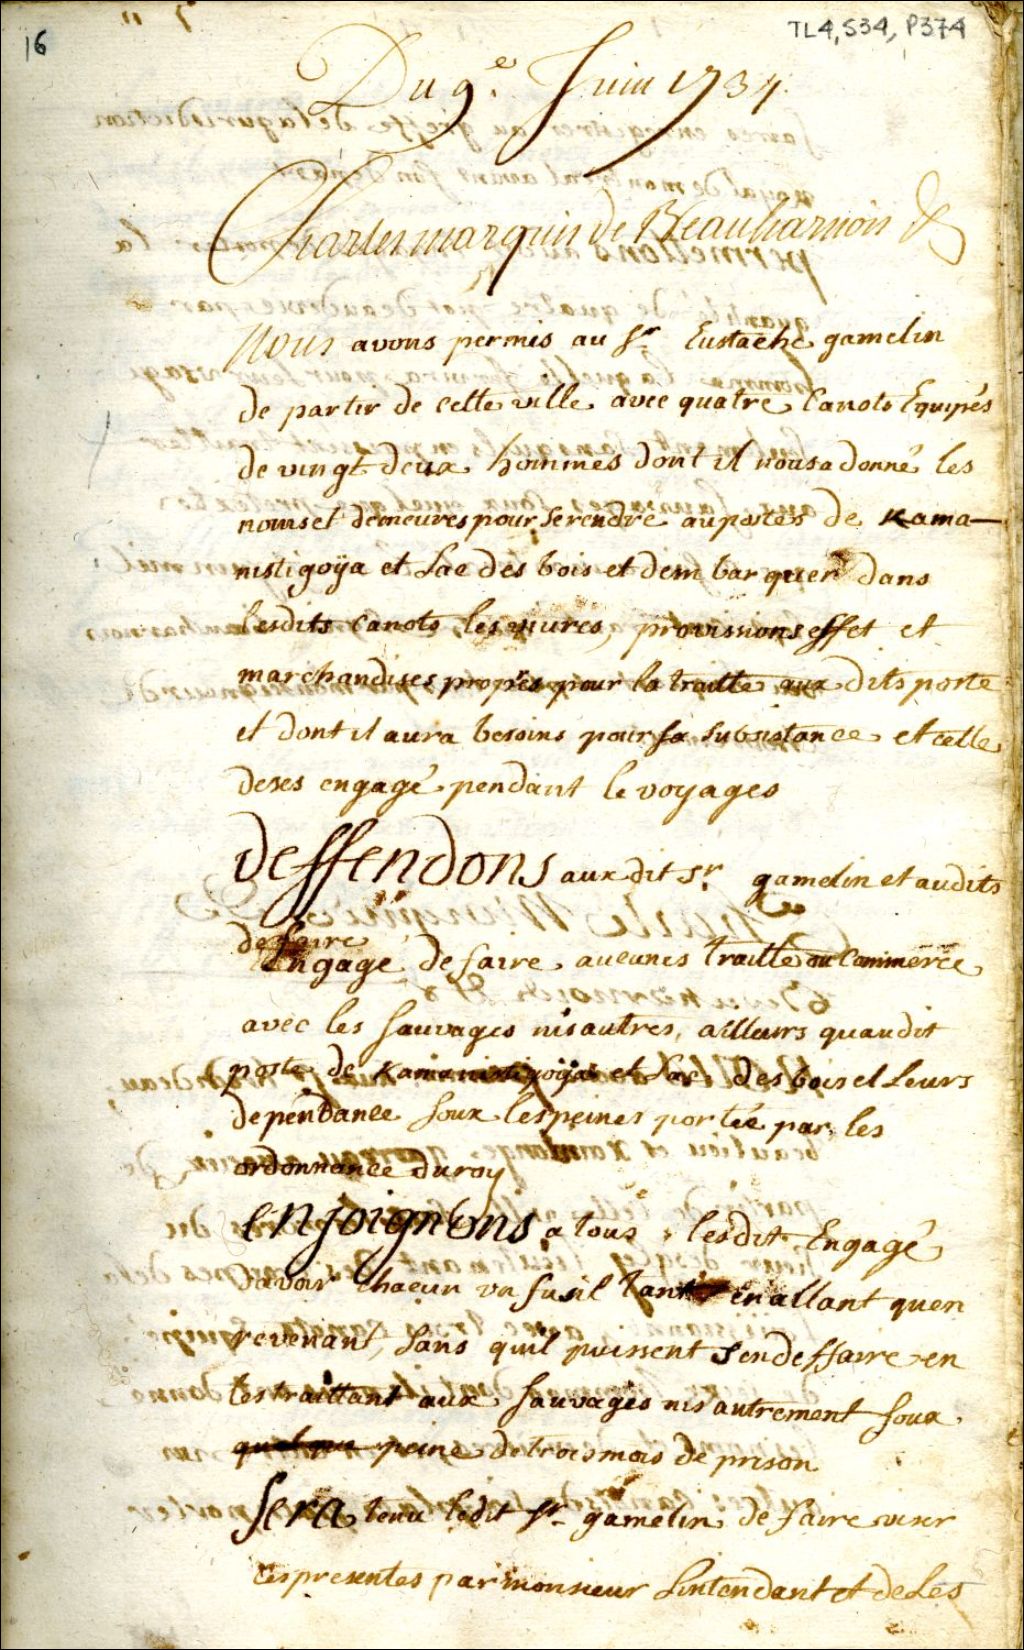 16
TL4,S34,P374
Du 9.e Juin 1734.
Charles marquis de Beauharnois &
Nous avons permis au Sr. Eustache gamelin
de partir de cette ville avec quatre Canots Equipés
de vingt deux hommes dont il nous a donné les
noms et demeures pour se rendre au postes de Kama-
nistigoÿa et Lac des bois et dembarquer dans
lesdits Canots les vivres, provisions effet et
marchandises propres pour la traitte aux dits poste
et dont il aura besoins pour sa subsistance et celle
deses engagé pendant le voyages
Deffendons aux dit Sr. gamelin et audits
de faire
Engagé de faire aucunes traitte ou Commerce
avec les sauvages nis autres, ailleurs quaudit
poste de Kamanistigoÿa et Lac des bois et Leurs
dependance soux les peines portée par les
ordonnance du roy
Enjoignons a tous lesdit Engagé
davoir chacun un fusil tant en allant quen
revenant, sans quil puissent sendeffaire en
les traittant aux sauvages nis autrement soux
quelque peine de trois mois de prison
Sera tenu ledit Sr. gamelin de faire viser
ces presentes par monsieur Lintendant et de Les